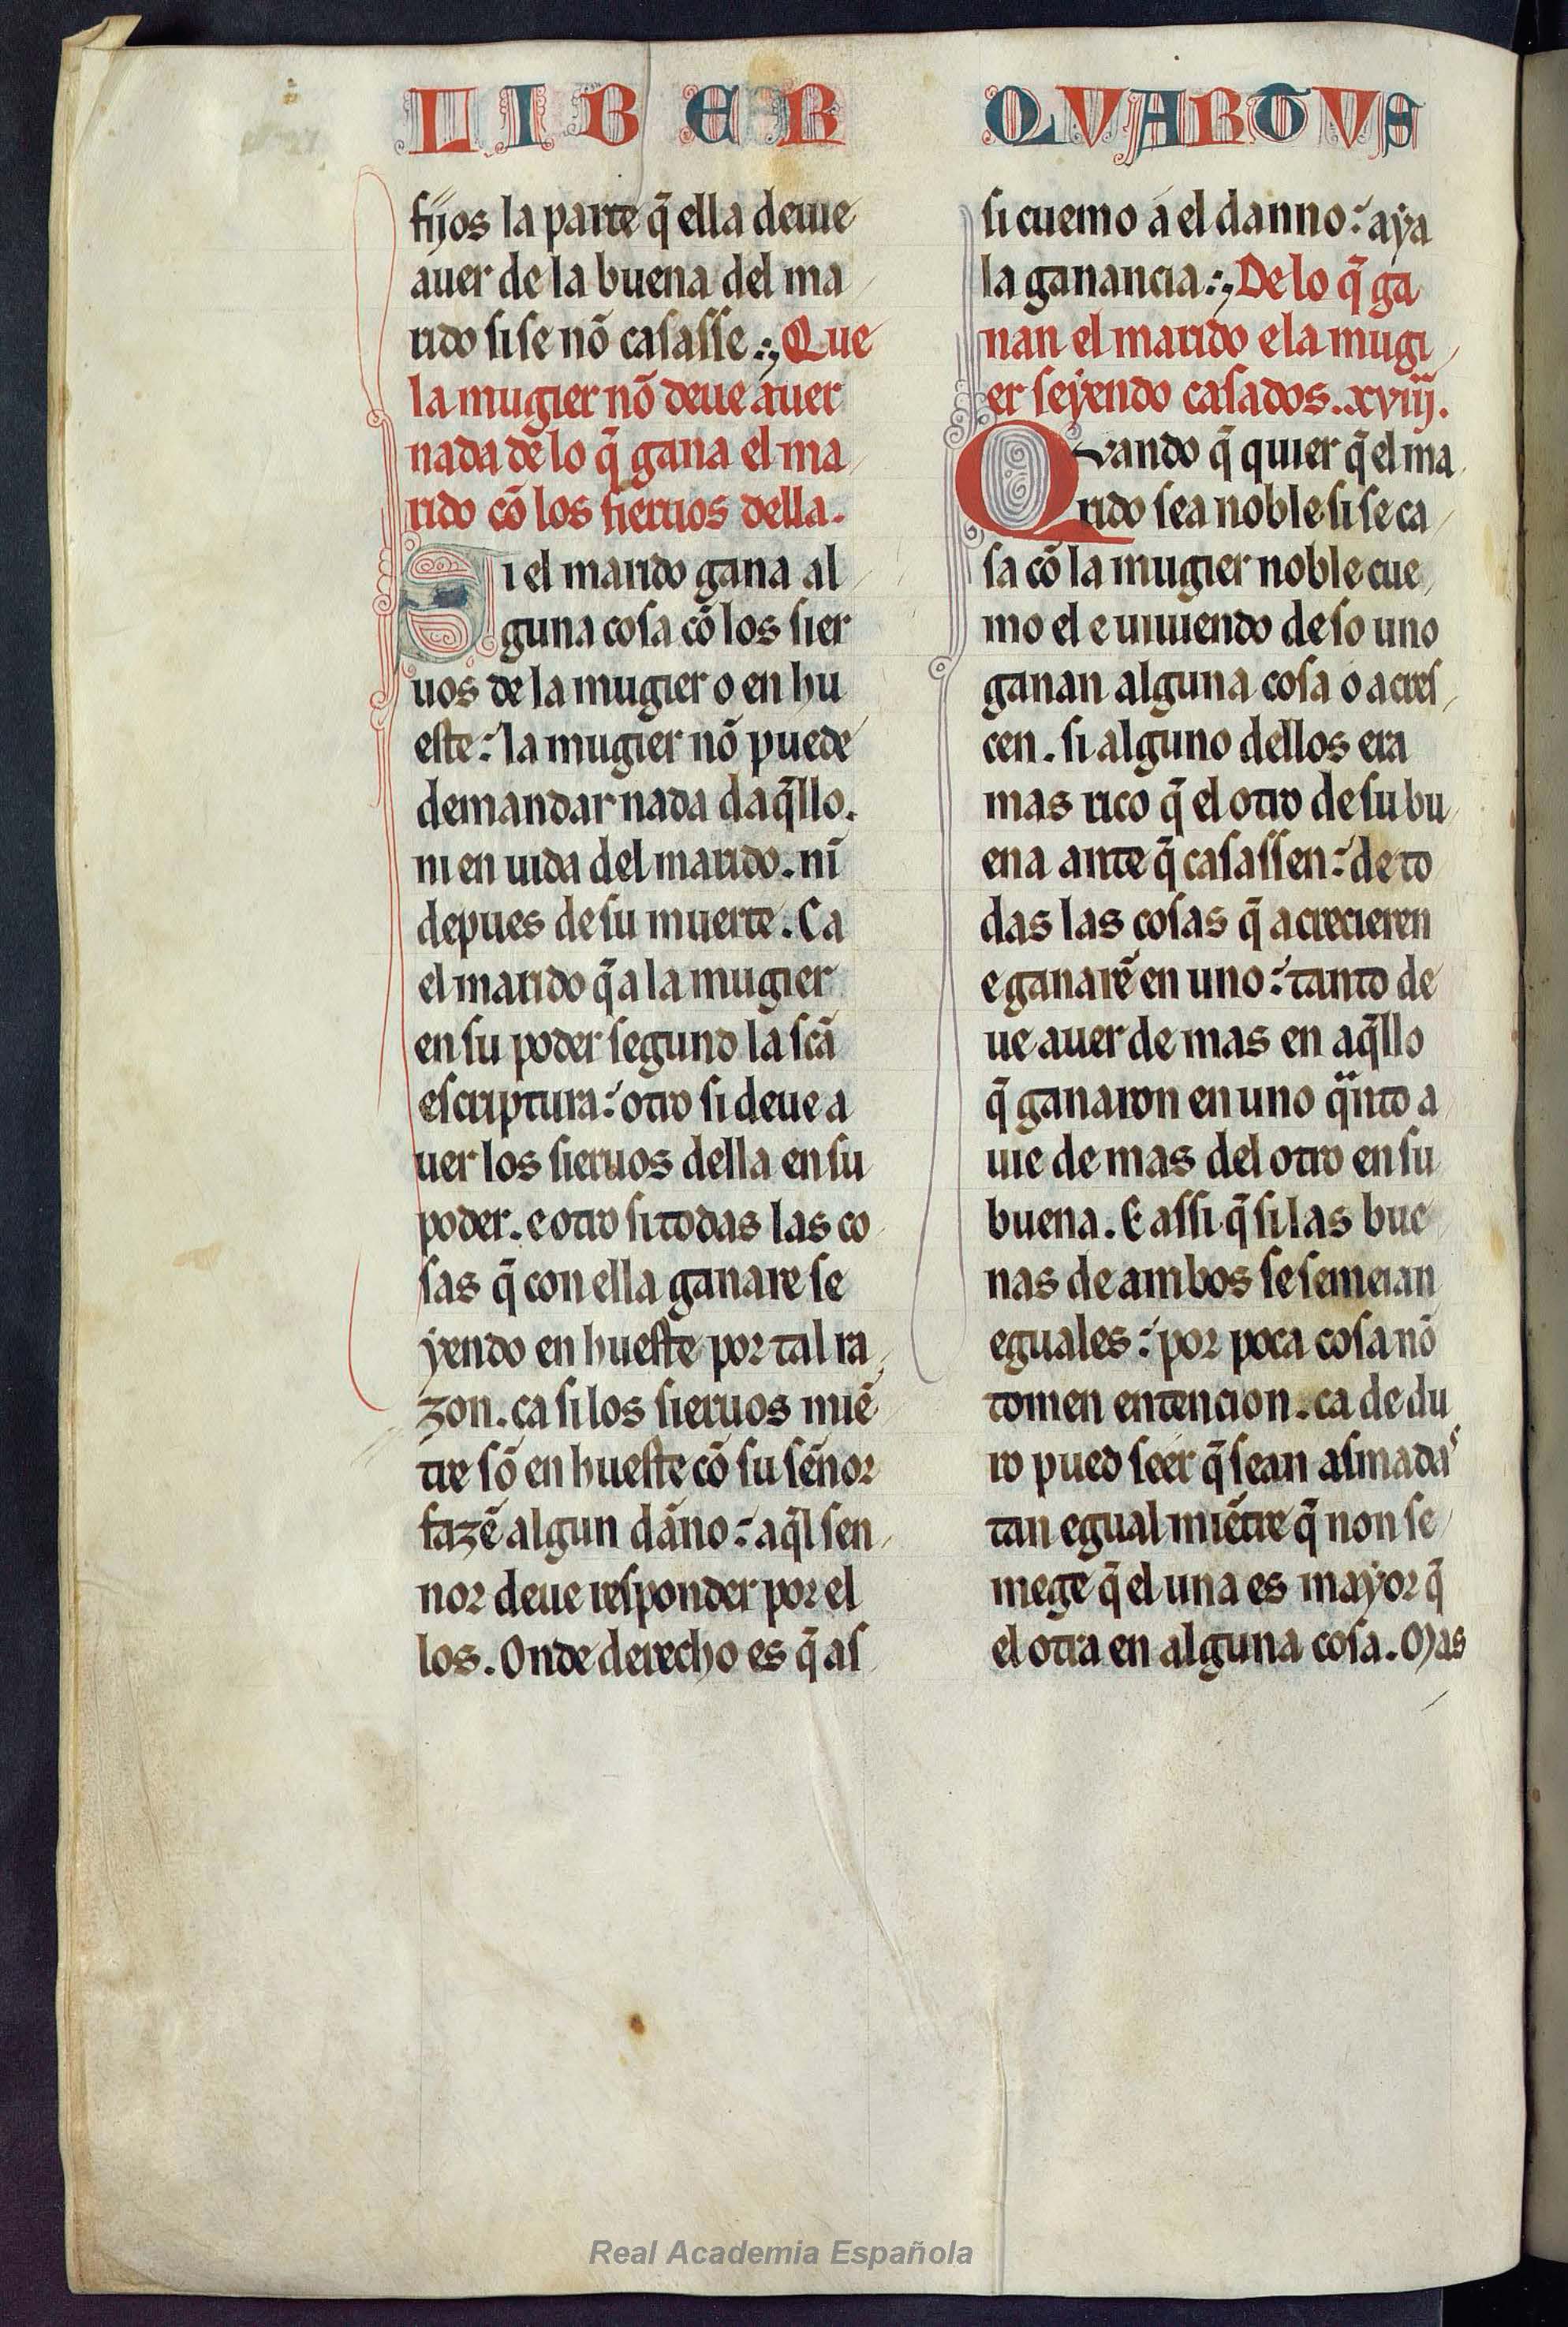 LIBER QVARTVS
fijos la parte q̃ ella deue
auer de la buena del ma
rido si se nõ casasse.:, Que
la mugier nõ deue auer
nada de lo q̃ gana el ma
rido cõ los sieruos della.
Si el marido gana al
guna cosa cõ los sier
uos de la mugier o en hu
este:́ la mugier nõ puede
demandar nada daq̃llo.
ni en uida del marido. nĩ
depues de su muerte. Ca
el marido q̃ a la mugier
en su poder segund la scã
escriptura:́ otro si deue a
uer los sieruos della en su
poder. e otro si todas las co
sas q̃ con ella ganare se
yendo en hueste por tal ra
zon. ca si los sieruos miẽ
tre sõ en hueste cõ su sẽnor
fazẽ algun dãno:́ aq̃l sen
nor deue responder por el
los. Onde derecho es q̃ as
si cuemo a el danno:́ aya
la ganancia.:, De lo q̃ ga
nan el marido e la mugi
er seyendo casados. xviij.
Qvando q̃ quier q̃ el ma
rido sea noble si se ca
sa cõ la mugier noble cue
mo el e uiuiendo de so uno
ganan alguna cosa o acres
cen. si alguno dellos era
mas rico q̃ el otro de su bu
ena ante q̃ casassen:́ de to
das las cosas q̃ acrecieren
e ganarẽ en uno:́ tanto de
ue auer de mas en aq̃llo
q̃ ganaron en uno q̃nto a
uie de mas del otro en su
buena. E assi q̃ si las bue
nas de ambos se semeian
eguales:́ por poca cosa nõ
tomen entencion. ca de du
ro pued seer q̃ sean asmadas
tan egual miẽtre q̃ non se
mege q̃ el una es mayor q̃
el otra en alguna cosa. Mas
Real Academia Española